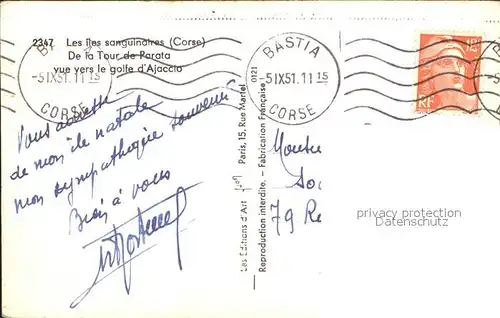 2347 Les îles sanguinaires (Corse)
De la Tour de Parata
vue vers le golfe d'Ajaccio
BASTIA
-5 IX 51. 11 15
CORSE
BASTIA
-5 IX 51. 11 15
CORSE
RF
Vous adresse
de mon île natale
mon sympathique souvenir
Bien à vous
Les Editions d'Art
Paris, 15, Rue Martel
Reproduction interdite. - Fabrication Française
0121
79 Re
privacy protection
Datenschutz